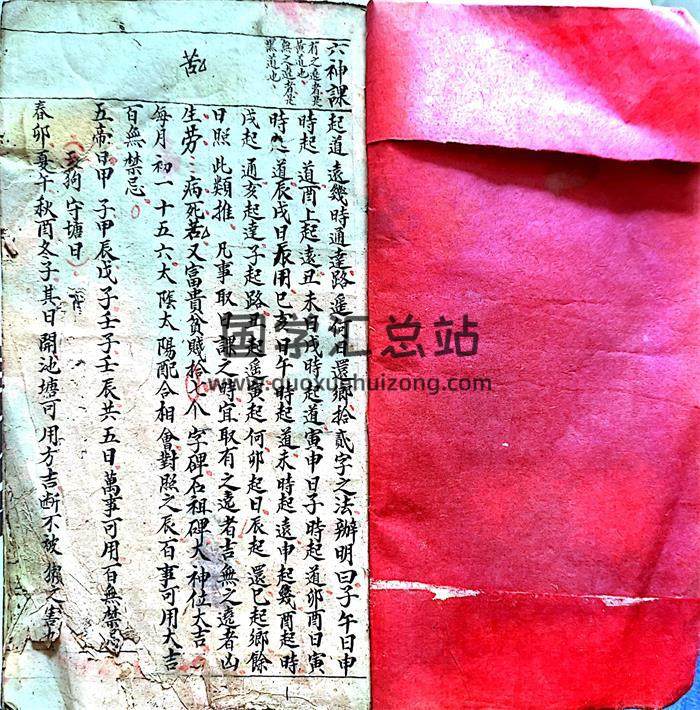 六神課
有之遠者是
黃道也、
無之遠者是
黑道也、
起道遠幾時通達路遙何日還鄉拾貳字之法辦明曰子午日申
時起道酉上起遠丑未日戌時起道寅申日子時起道卯酉日寅
時起道辰戌日辰用巳亥日午時起道未時起遠申起幾酉起時
戌起通亥起達子起路丑起遙寅起何卯起日辰起還巳起鄉餘
日照此類推凡事取日課之時宜取有之遠者吉無之遠者凶
生勞病死苦又富貴貧賤拾个字碑石祖碑大神位大吉
每月初一十五六太陰太陽配合相會對照之辰百事可用大吉
百無禁忌
五帝日甲子甲辰戊子壬子壬辰共五日萬事可用百無禁忌
狗守塘日
春卯夏午秋酉冬子其日開池塘可用方吉斷不被獺之害
国学汇总站
www.guoxuehuizong.com